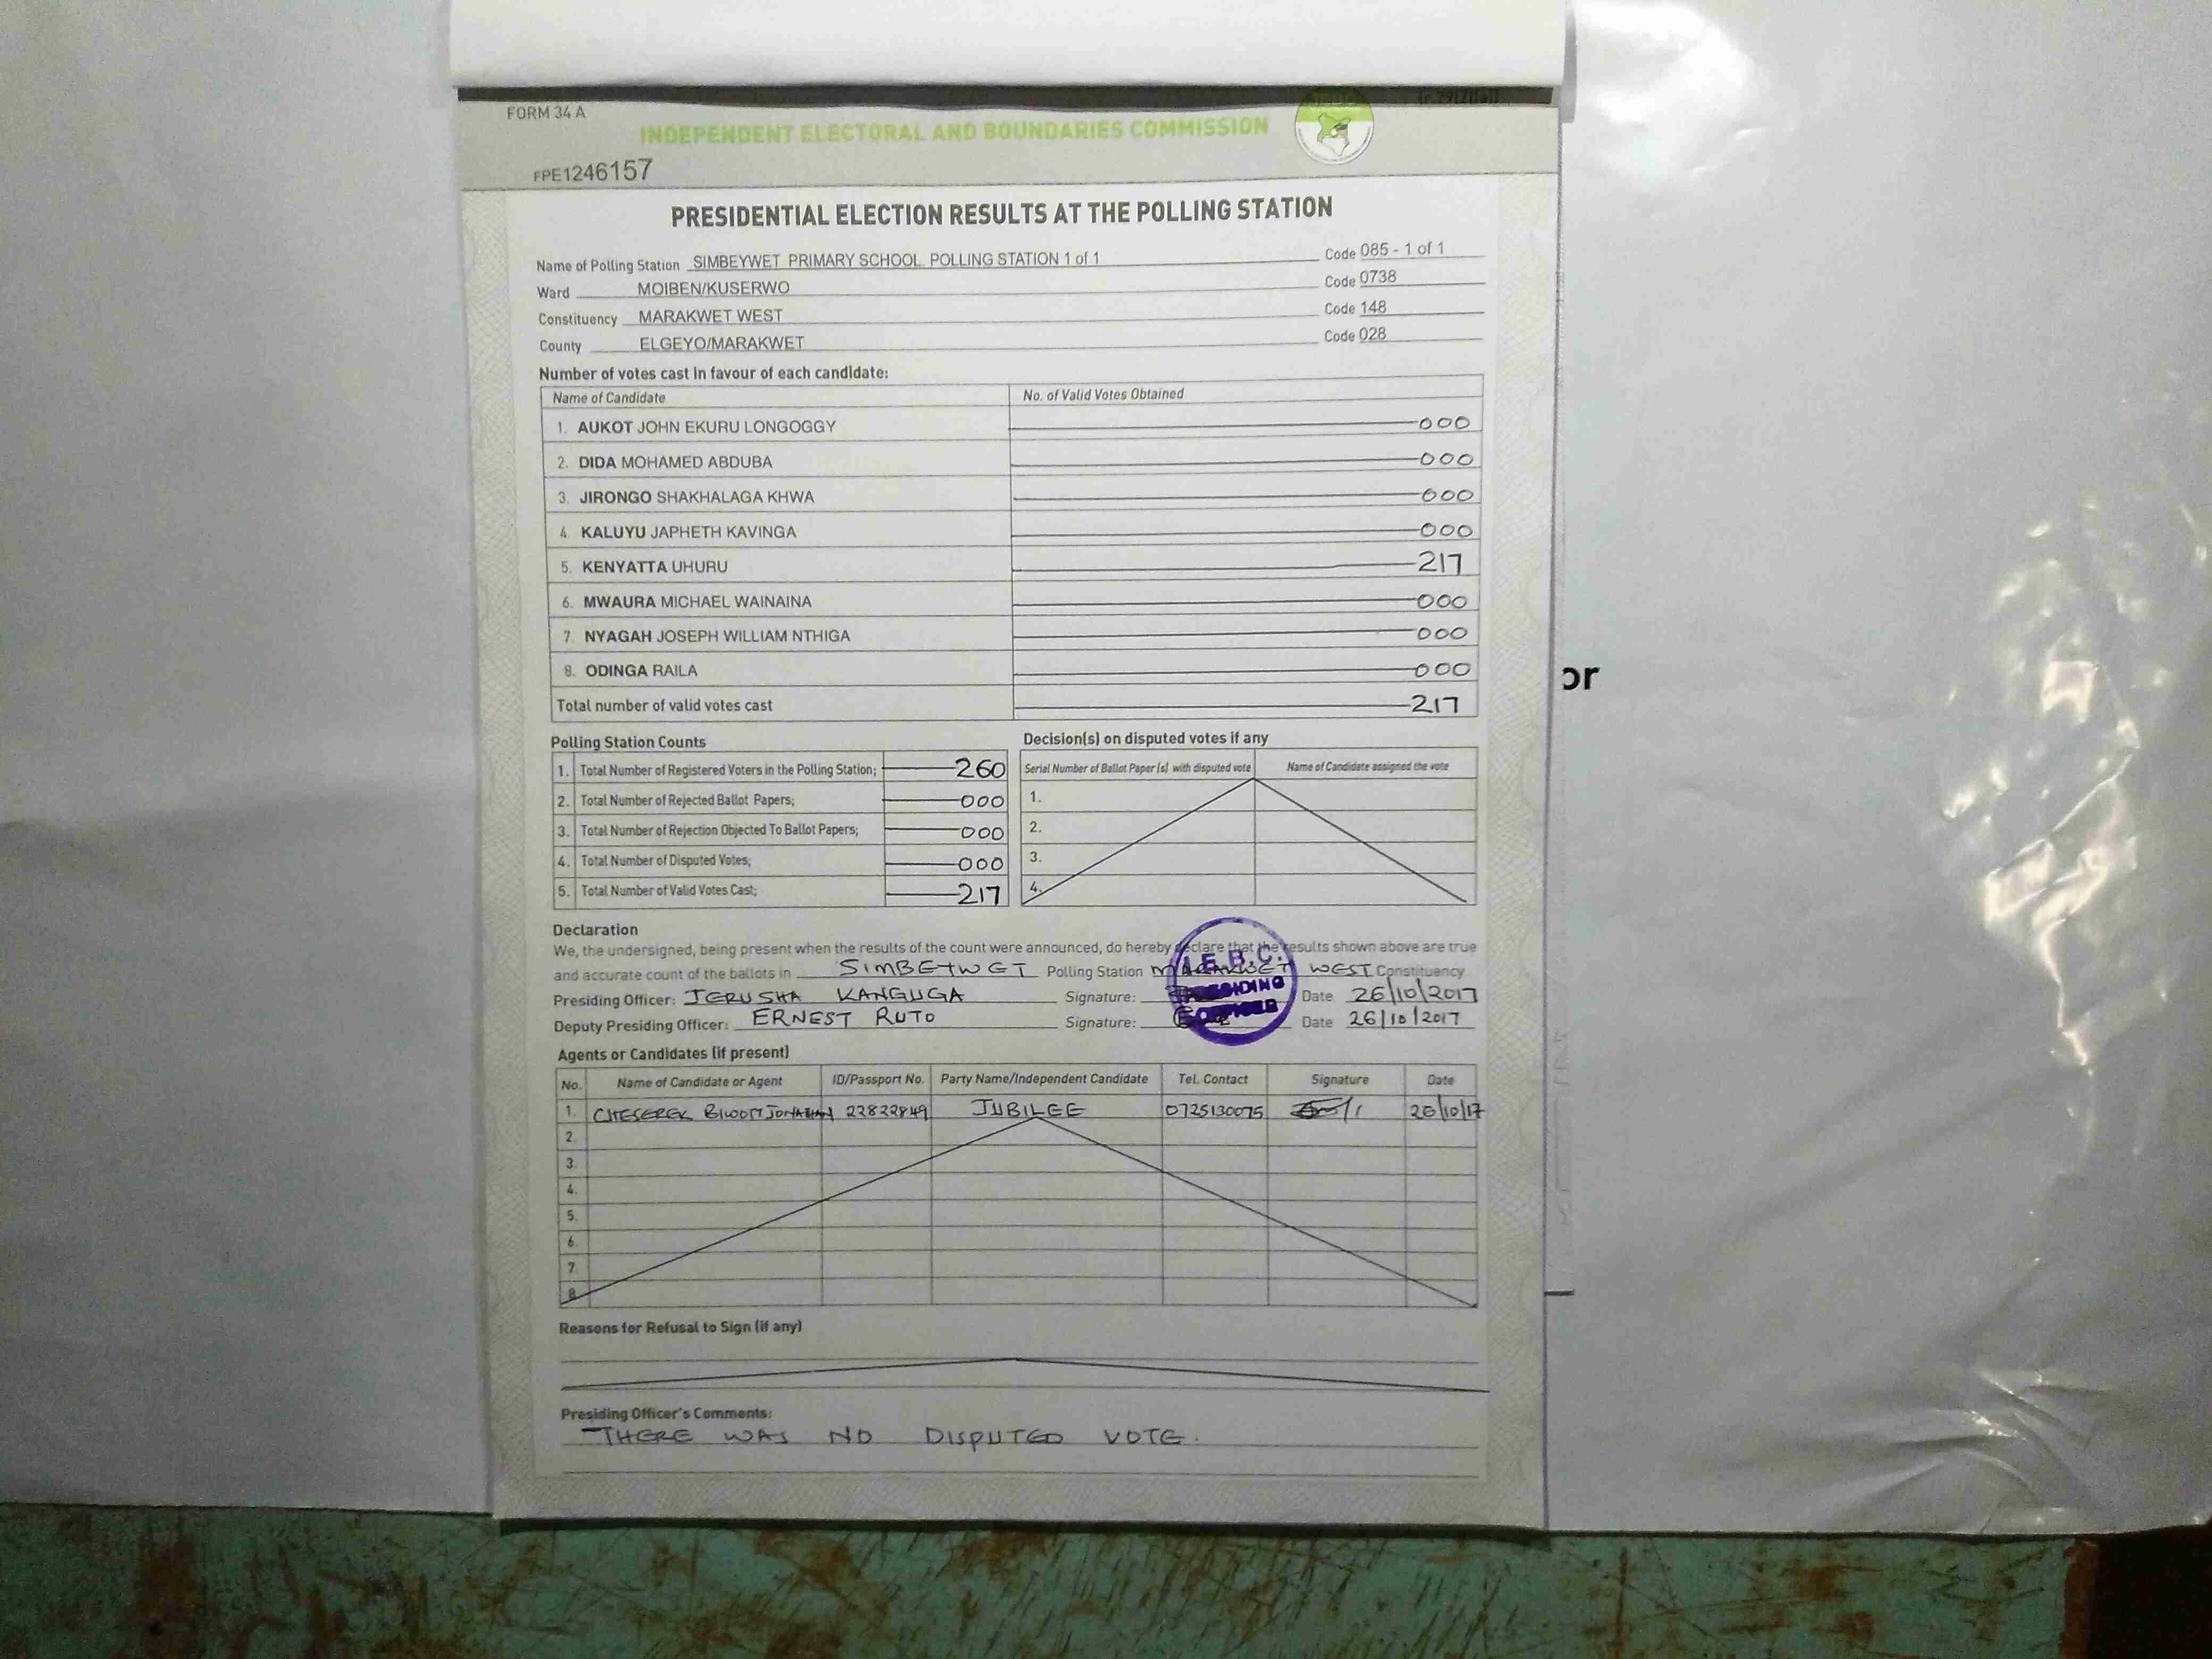 FORM 34 A
INDEPENDENT ELECTORAL AND BOUNDARIES COMMISSION
FPE1246157
PRESIDENTIAL ELECTION RESULTS AT THE POLLING STATION
Name of Polling Station SIMBEYWET PRIMARY SCHOOL. POLLING STATION 1 of 1 Code 085 - 1 of 1
Ward MOIBEN/KUSERWO Code 0738
Constituency MARAKWET WEST Code 148
County ELGEYO/MARAKWET Code 028
Number of votes cast in favour of each candidate:
Name of Candidate No. of Valid Votes Obtained
1. AUKOT JOHN EKURU LONGOGGY 000
2. DIDA MOHAMED ABDUBA 000
3. JIRONGO SHAKHALAGA KHWA 000
4. KALUYU JAPHETH KAVINGA 000
5. KENYATTA UHURU 217
6. MWAURA MICHAEL WAINAINA 000
7. NYAGAH JOSEPH WILLIAM NTHIGA 000
8. ODINGA RAILA 000
Total number of valid votes cast 217
or
Polling Station Counts
1. Total Number of Registered Voters in the Polling Station; 260
2. Total Number of Rejected Ballot Papers; 000
3. Total Number of Rejection Objected To Ballot Papers; 000
4. Total Number of Disputed Votes; 000
5. Total Number of Valid Votes Cast; 217
Decision(s) on disputed votes if any
Serial Number of Ballot Paper (s) with disputed vote Name of Candidate assigned the vote
1.
2.
3.
4.
Declaration
We, the undersigned, being present when the results of the count were announced, do hereby declare that the results shown above are true
and accurate count of the ballots in SIMBEYWET Polling Station MARAKWET WEST Constituency
Presiding Officer: JERUSHA KANGUGA Signature: Date 26/10/2017
Deputy Presiding Officer: ERNEST RUTO Signature: Date 26/10/2017
I.E.B.C.
PRESIDING
OFFICER
Agents or Candidates (if present)
No. Name of Candidate or Agent ID/Passport No. Party Name/Independent Candidate Tel. Contact Signature Date
1. CHESEREK JONATHAN 22822849 JUBILEE 0725130075 26/10/17
2.
3.
4.
5.
6.
7.
8.
Reasons for Refusal to Sign (if any)
Presiding Officer's Comments:
THERE WAS NO DISPUTED VOTE.